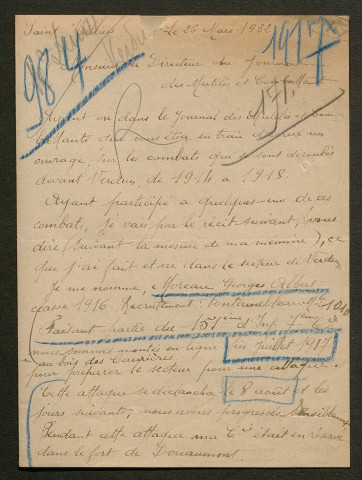 Saint le 26 Mars 1932
1917
987
Monsieur le Directeur du Journal
des Mutilés et Combattants
151
Ayant vu dans le Journal des Mutilés et Com-
battants que vous étiez en train de faire un
ouvrage, sur les combats qui se sont déroulés
devant Verdun, de 1914 à 1918.
Ayant participé a quelques-uns de ces
combats, je vais, par le récit suivant, vous
dire (suivant la mesure de ma mémoire), ce
que j'ai fait et vu dans le secteur de Verdun
Je me nomme, Moreau Georges
classe 1916 Recrutement: Fontainebleau Mle 1040
Faisant partie du d'Inf.
nous sommes montés en ligne, fin juillet 1917
au bois des Caurrières
pour préparer le secteur pour une attaque.
Cette attaque se déclancha le 8 août et les
jours suivants, nous avions progressés sensiblement
Pendant cette attaque ma Cie était en réserve
dans le fort de Douaumont.